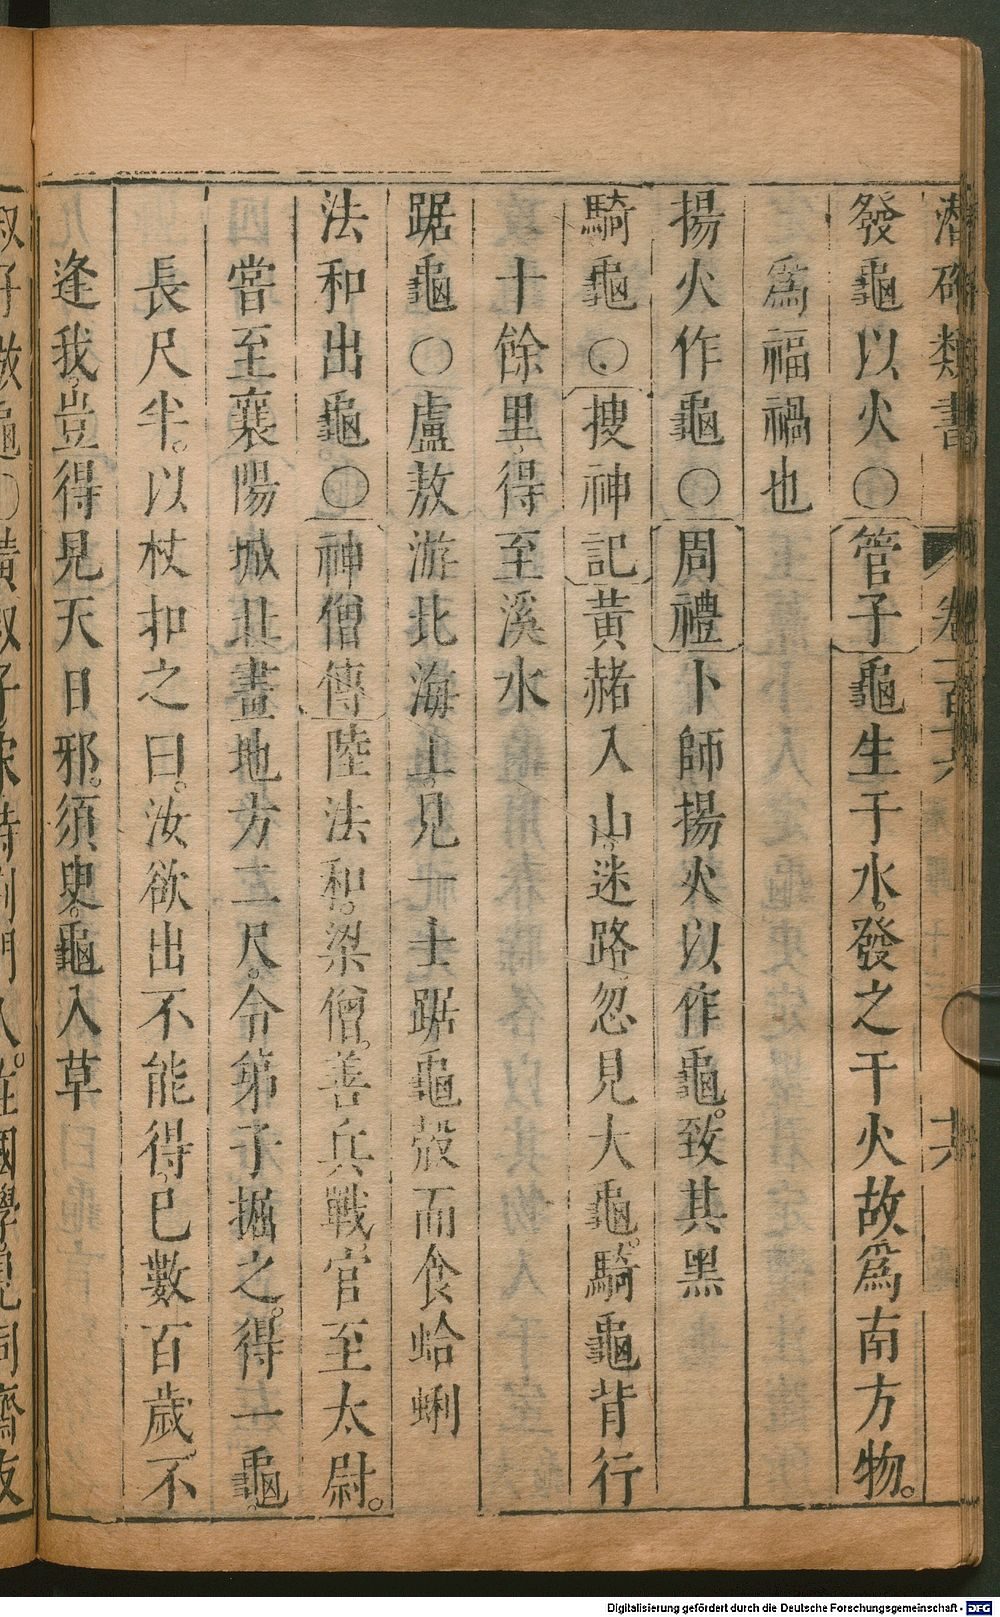 潛確類書 卷一百六 六
發龜以火〇管子龜生于水。發之于火故爲南方物。
爲福禍也
揚火作龜〇周禮卜師揚火以作龜。致其黑
騎龜〇搜神記黃赭入山。迷路忽見大龜。騎龜背行
十餘里。得至溪水
踞龜〇盧敖游北海上。見一士踞龜殼而食蛤蜊
法和出龜〇神僧傳陸法和。梁僧。善兵戰。官至太尉。
嘗至襄陽城北。畫地方二尺。令第子掘之。得一龜。
長尺半。以杖扣之曰。汝欲出不能得。已數百歲。不
逢我。豈得見天日邪。須臾。龜入草
Digitalisierung gefördert durch die Deutsche Forschungsgemeinschaft - DFG